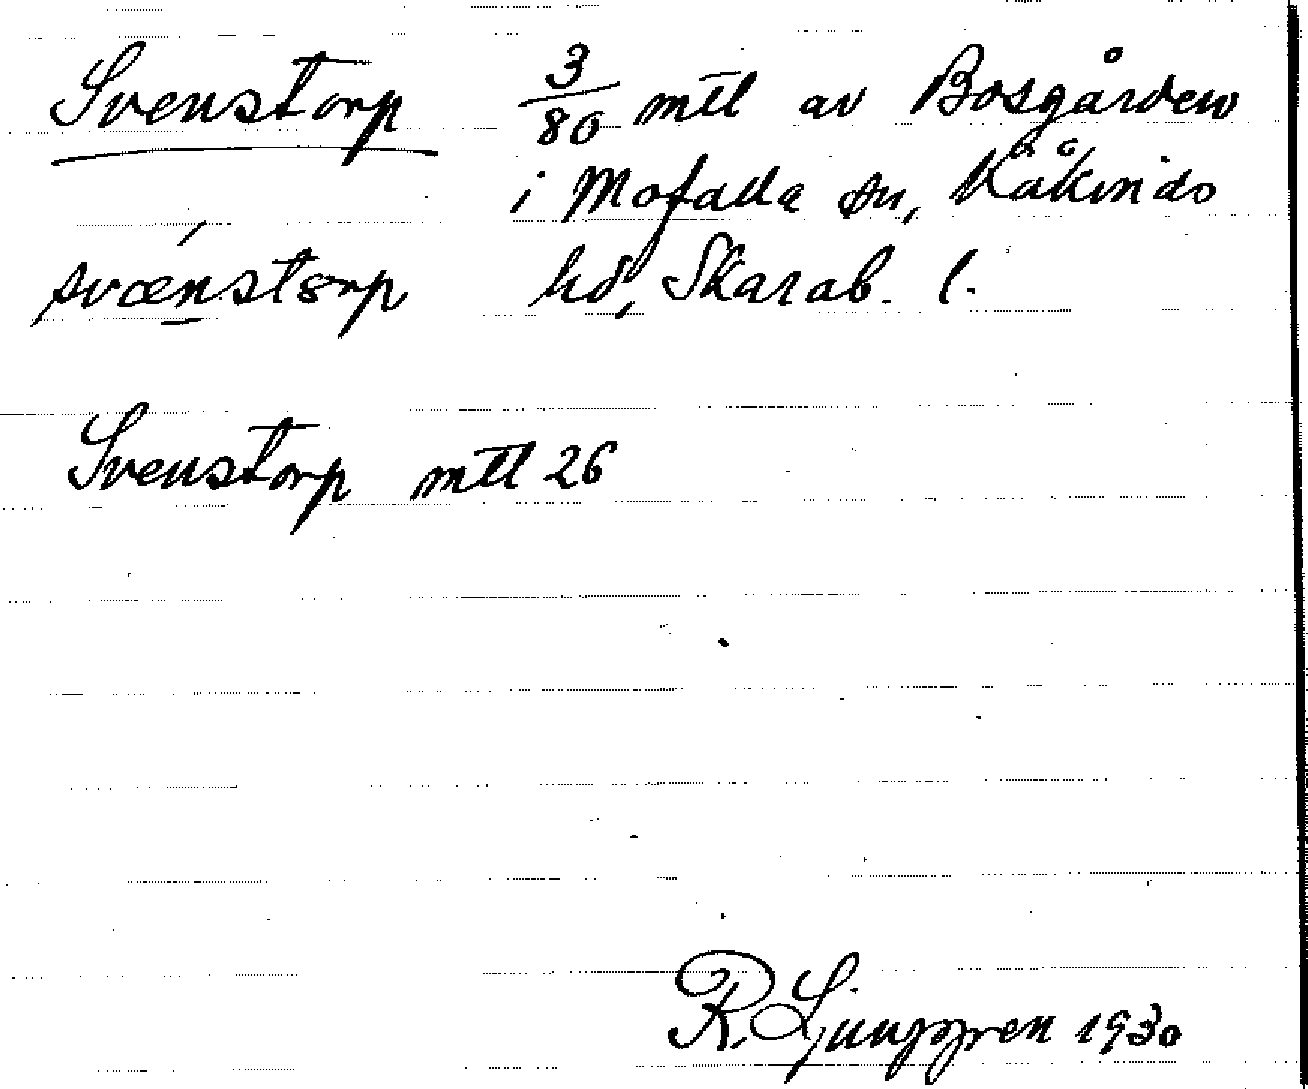 Svenstorp 3/80 mtl av Bosgården
i Mofalla sn, Kåkinds
svǽnstorp hd, Skarab. l.
Svenstorp mtl 26
R. Ljunggren 1930